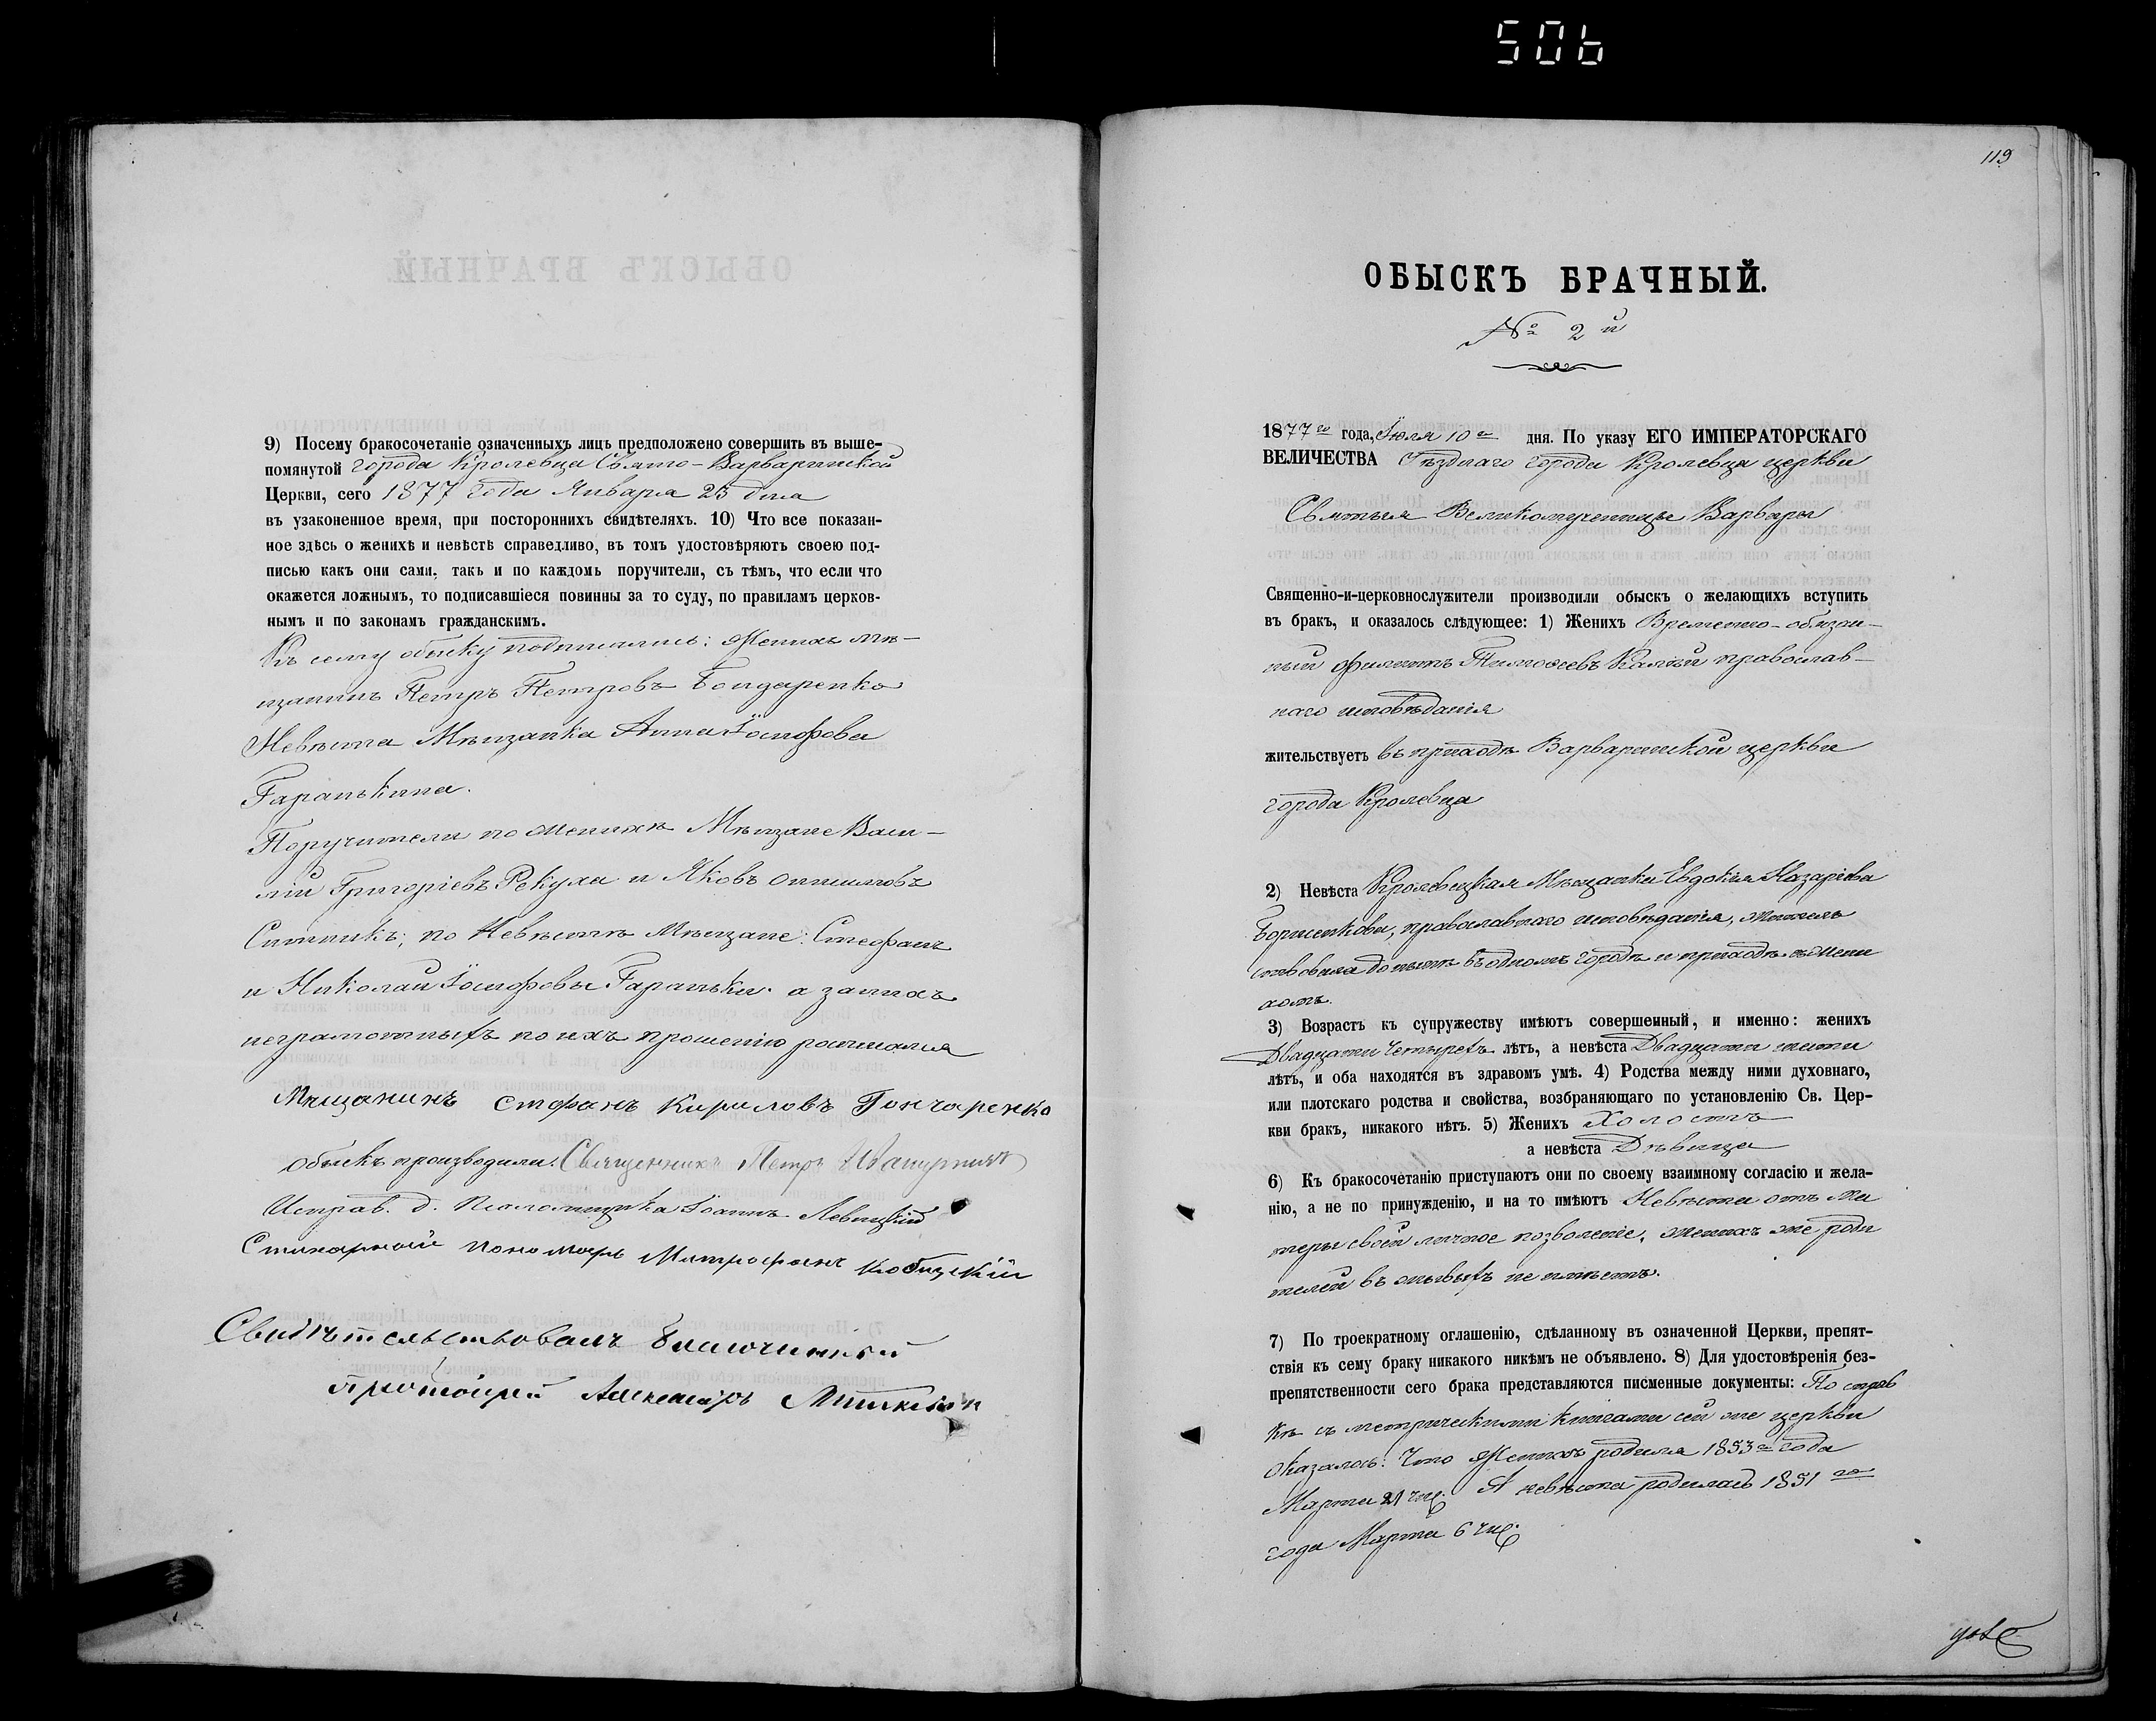 506
9) Посему бракосочетаніе означенныхъ лицъ предположено совершить въ выше-
помянутой города Кролевца Свято-Варваринской
Церкви, сего 1877 года Января 23 дня
въ узаконенное время, при постороннихъ свидѣтеляхъ. 10) Что все показан-
ное здѣсь о женихѣ и невѣстѣ справедливо, въ томъ удостовѣряютъ своею под-
писью какъ они сами, такъ и по каждомъ поручители, съ тѣмъ, что если что
окажется ложнымъ, то подписавшіеся повинны за то суду, по правиламъ церков-
нымъ и по законамъ гражданскимъ.
Къ сему обыску подписались: Женихъ мѣ-
щанинъ Петръ Петровъ Бондаренко
Невѣста Мѣщанка Анна Іосифова
Гаранькина.
Поручители по женихѣ Мѣщане Васи-
лій Григоріевъ Рекуха и Яковъ
Ситникъ; по Невѣстѣ Мѣщане: Стефанъ
и Николай Іосифовы Гараньки. а за нихъ
неграмотныхъ по ихъ прошенію росписался
Мещанинъ Стефанъ Кириловъ Гончаренко
Обыскъ производили: Священникъ Петръ
Исправ. д. Псаломщика Іоаннъ Левицкій
Стихарный пономарь Митрофанъ
Свидѣтельствовалъ Благочинный
Протоіерей Александръ
119
ОБЫСКЪ БРАЧНЫЙ.
№ 2й
1877го года, Іюля 10го дня. По указу ЕГО ИМПЕРАТОРСКАГО
ВЕЛИЧЕСТВА Уѣзднаго города Кролевца церкви
Святыя Великомученицы Варвары
Священно-и-церковнослужители производили обыскъ о желающихъ вступить
въ бракъ, и оказалось слѣдующее: 1) Женихъ Временно-обязан-
ный Филиппъ Тимоѳеевъ православ-
наго исповѣданія
жительствуетъ въ приходѣ Варваринской церкви
города Кролевца
2) Невѣста Кролевецкая Мѣщанка Евдокія Назаріева
Борисенкова, православнаго исповѣданія, житель
ствовала до нынѣ въ одномъ городѣ и приходѣ съ жени
хомъ.
3) Возрастъ къ супружеству имѣютъ совершенный, и именно: женихъ
Двадцати четырехъ лѣтъ, а невѣста Двадцати шести
лѣтъ, и оба находятся въ здравомъ умѣ. 4) Родства между ними духовнаго,
или плотскаго родства и свойства, возбраняющаго по установленію Св. Цер-
кви бракъ, никакого нѣтъ. 5) Женихъ Холостъ
а невѣста Дѣвица
6) Къ бракосочетанію приступаютъ они по своему взаимному согласію и жела-
нію, а не по принужденію, и на то имѣютъ Невѣста отъ ма
тери своей личное позволеніе, женихъ же роди
телей въ живыхъ не имѣетъ.
7) По троекратному оглашенію, сдѣланному въ означенной Церкви, препят-
ствія къ сему браку никакого никѣмъ не объявлено. 8) Для удостовѣренія без-
препятственности сего брака представляются писменные документы: По справ
кѣ съ метрическими книгами сей же церкви
оказалось: Что Женихъ родился 1853го года
Марта 21 чис. А невѣста родилась 1851го
года Марта 6 чис.